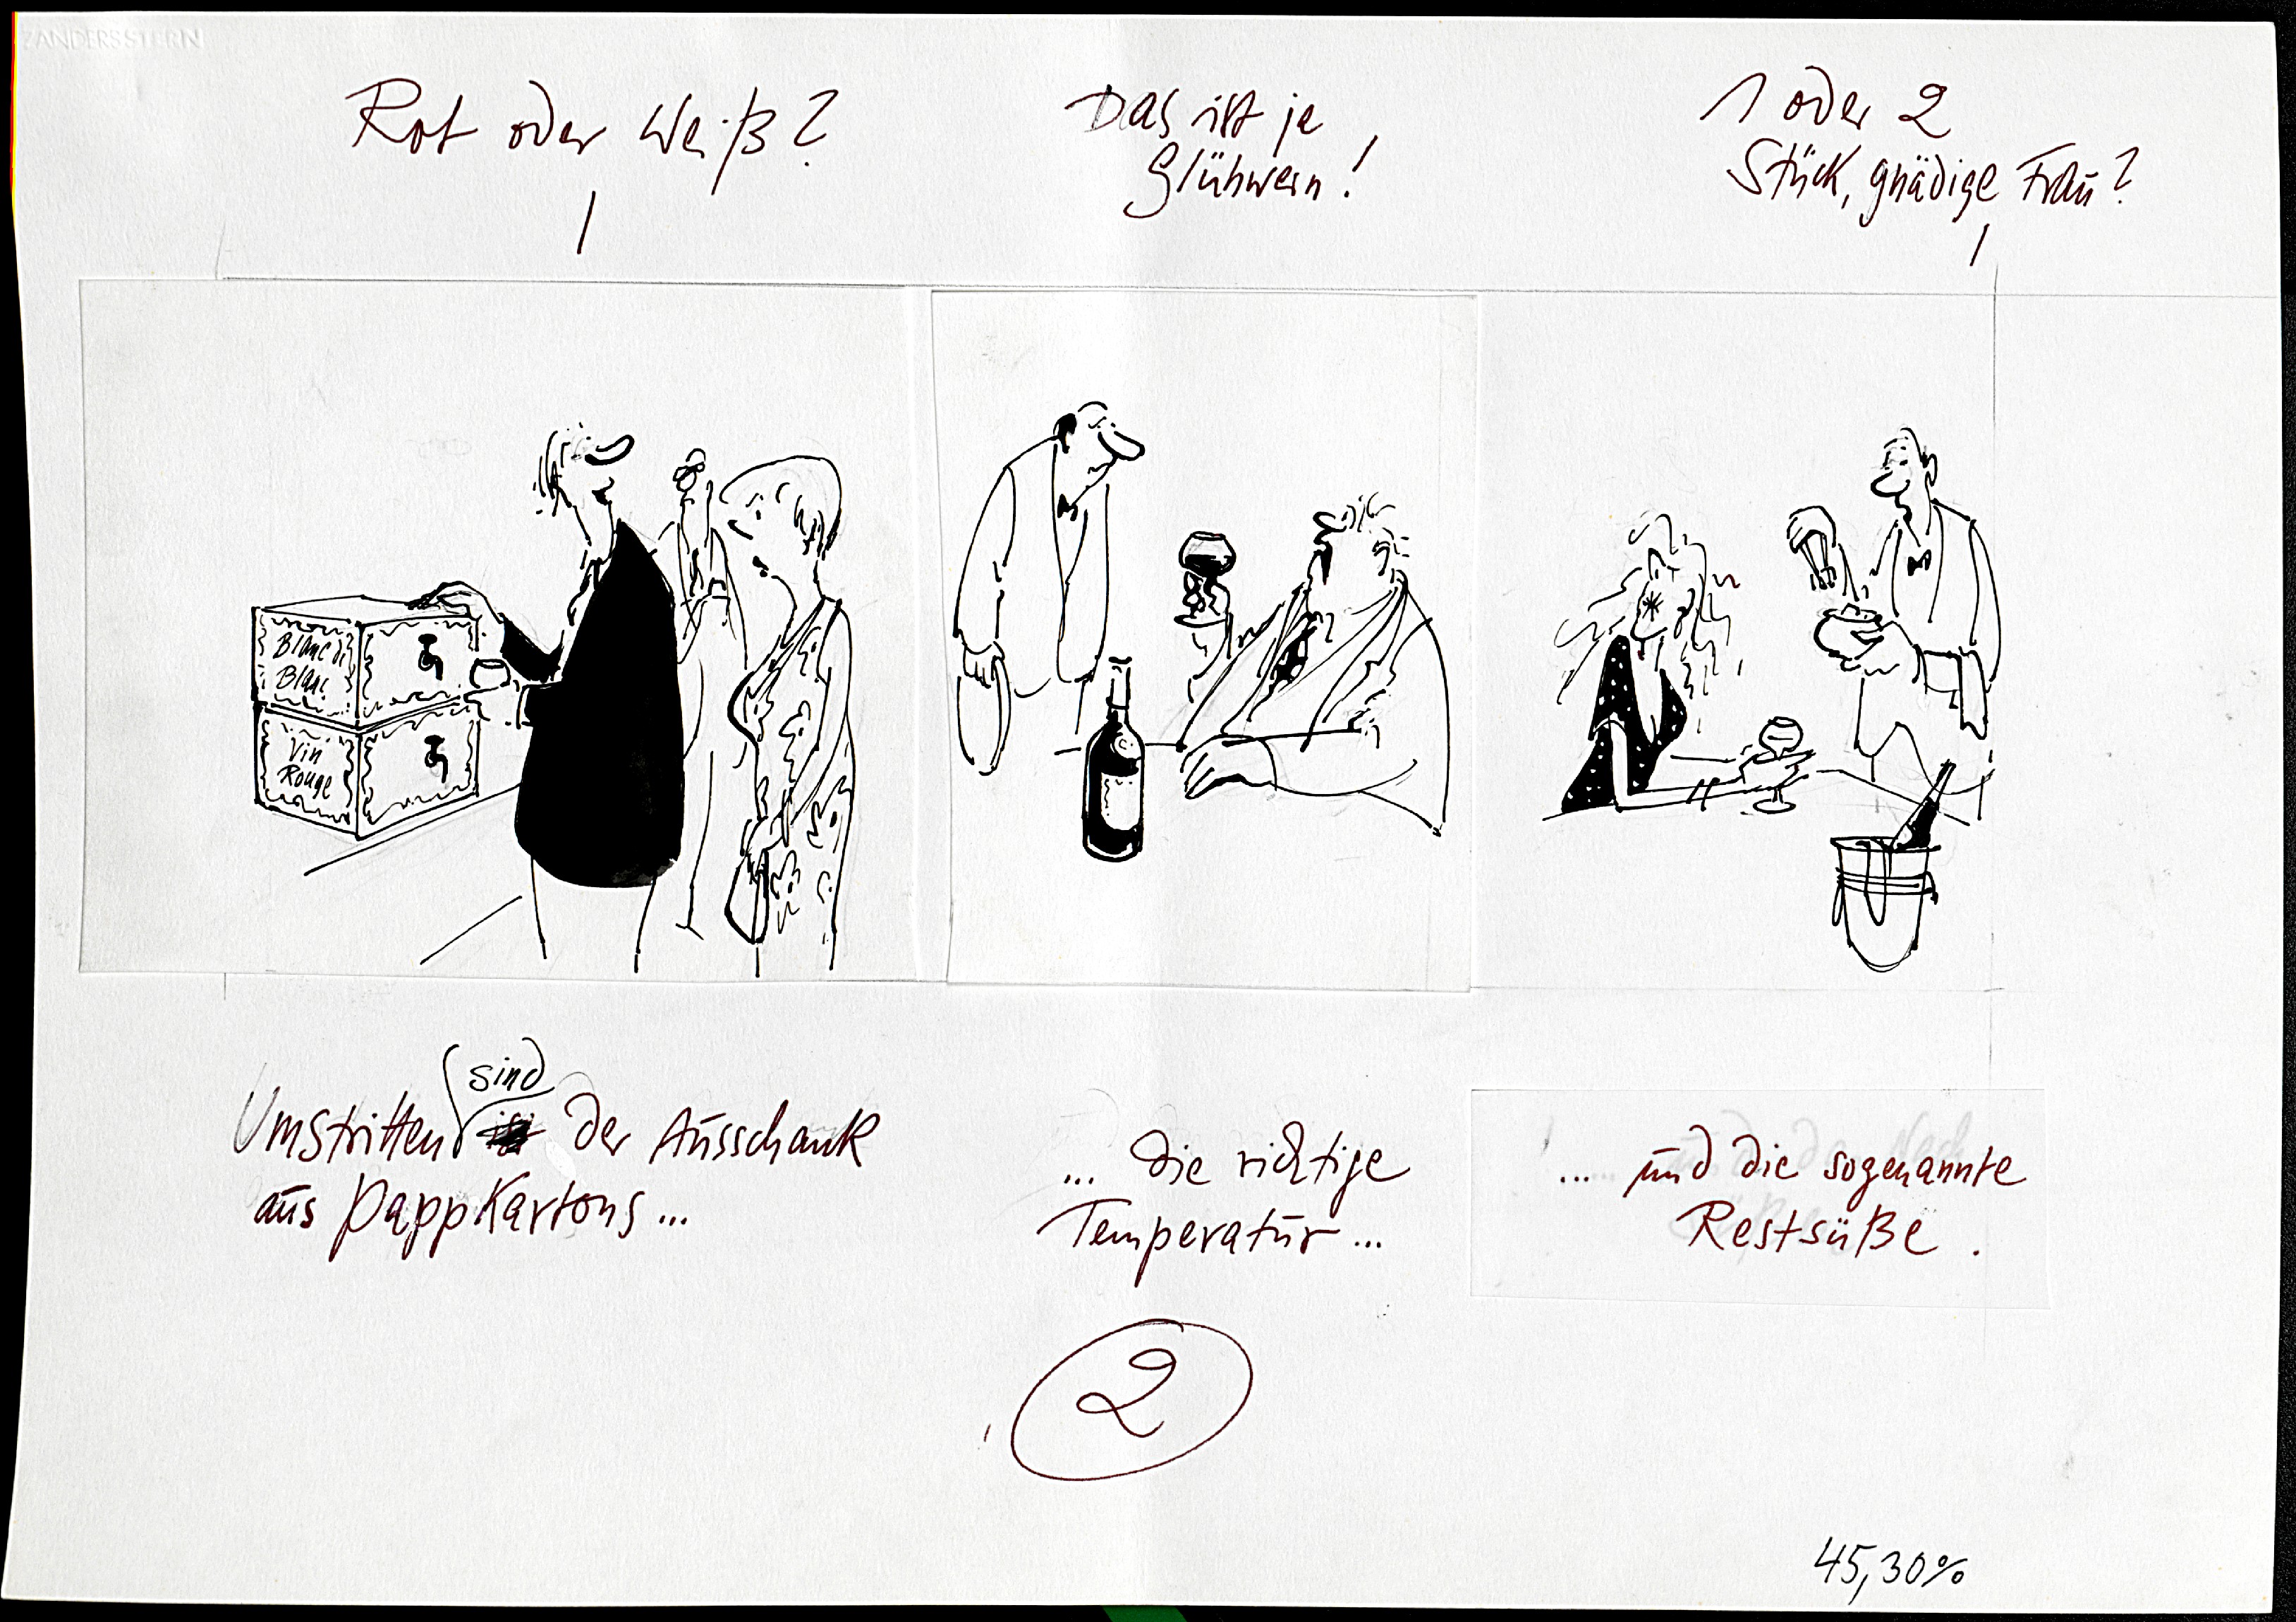 ZANDERS STERN
Rot oder Weiß?
Das ist ja
Glühwein!
1 oder 2
Stück, gnädige Frau?
Blanc de
Blanc
Vin
Rouge
sind
Umstritten der Ausschank
aus Pappkartons...
... die richtige
Temperatur...
... und die sogenannte
Restsüße.
2
45,30%